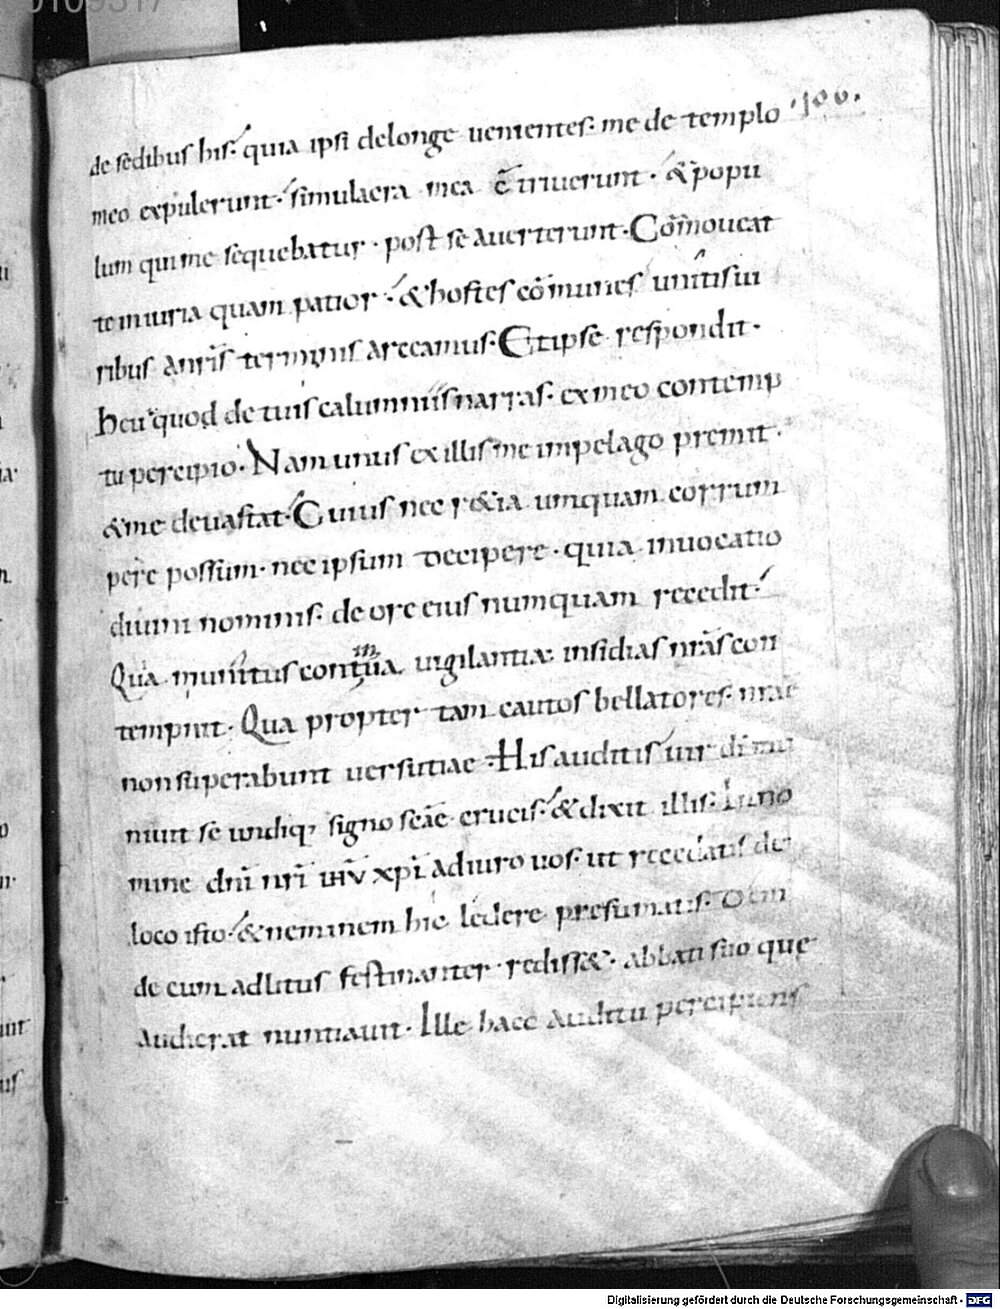 0109317
.100.
de sedibus his. quia ipsi delonge uenientes. me de templo
meo expulerunt. simulacra mea c̄triuerunt. &popu
lum quime sequebatur. post se auerterunt. Com̄oueat
teiniuria quam patior. &hostes com̄unes unitis ui
ribus anr̄is terminis arceamus. Etipse respondit.
heu quod de tuis calumniis narras. exmeo contemp
tu percipio. Nam unus ex illis me inpelago premit.
&me deuastat. Cuius nec r&ia umquam corrum
pere possum. nec ipsum decipere. quia inuocatio
diuini nominis. de ore eius numquam recedit.
Quia munitus continua uigilantia insidias nr̄as con
tempnit. Qua propter tam cautos bellatores. nrae
non superabunt uersutiae. His auditis uir di mu
niuit se undiq; signo scāe crucis. &dixit illis. In no
mine dn̄i nr̄i ihū xp̄i adiuro uos. ut recedatis de
loco isto. &neminem hic ledere presumatis. Dein
de cum adlitus festinanter rediss&. abbati suo que
audierat nuntiauit. Ille haec auditu percipiens
Digitalisierung gefördert durch die Deutsche Forschungsgemeinschaft - DFG